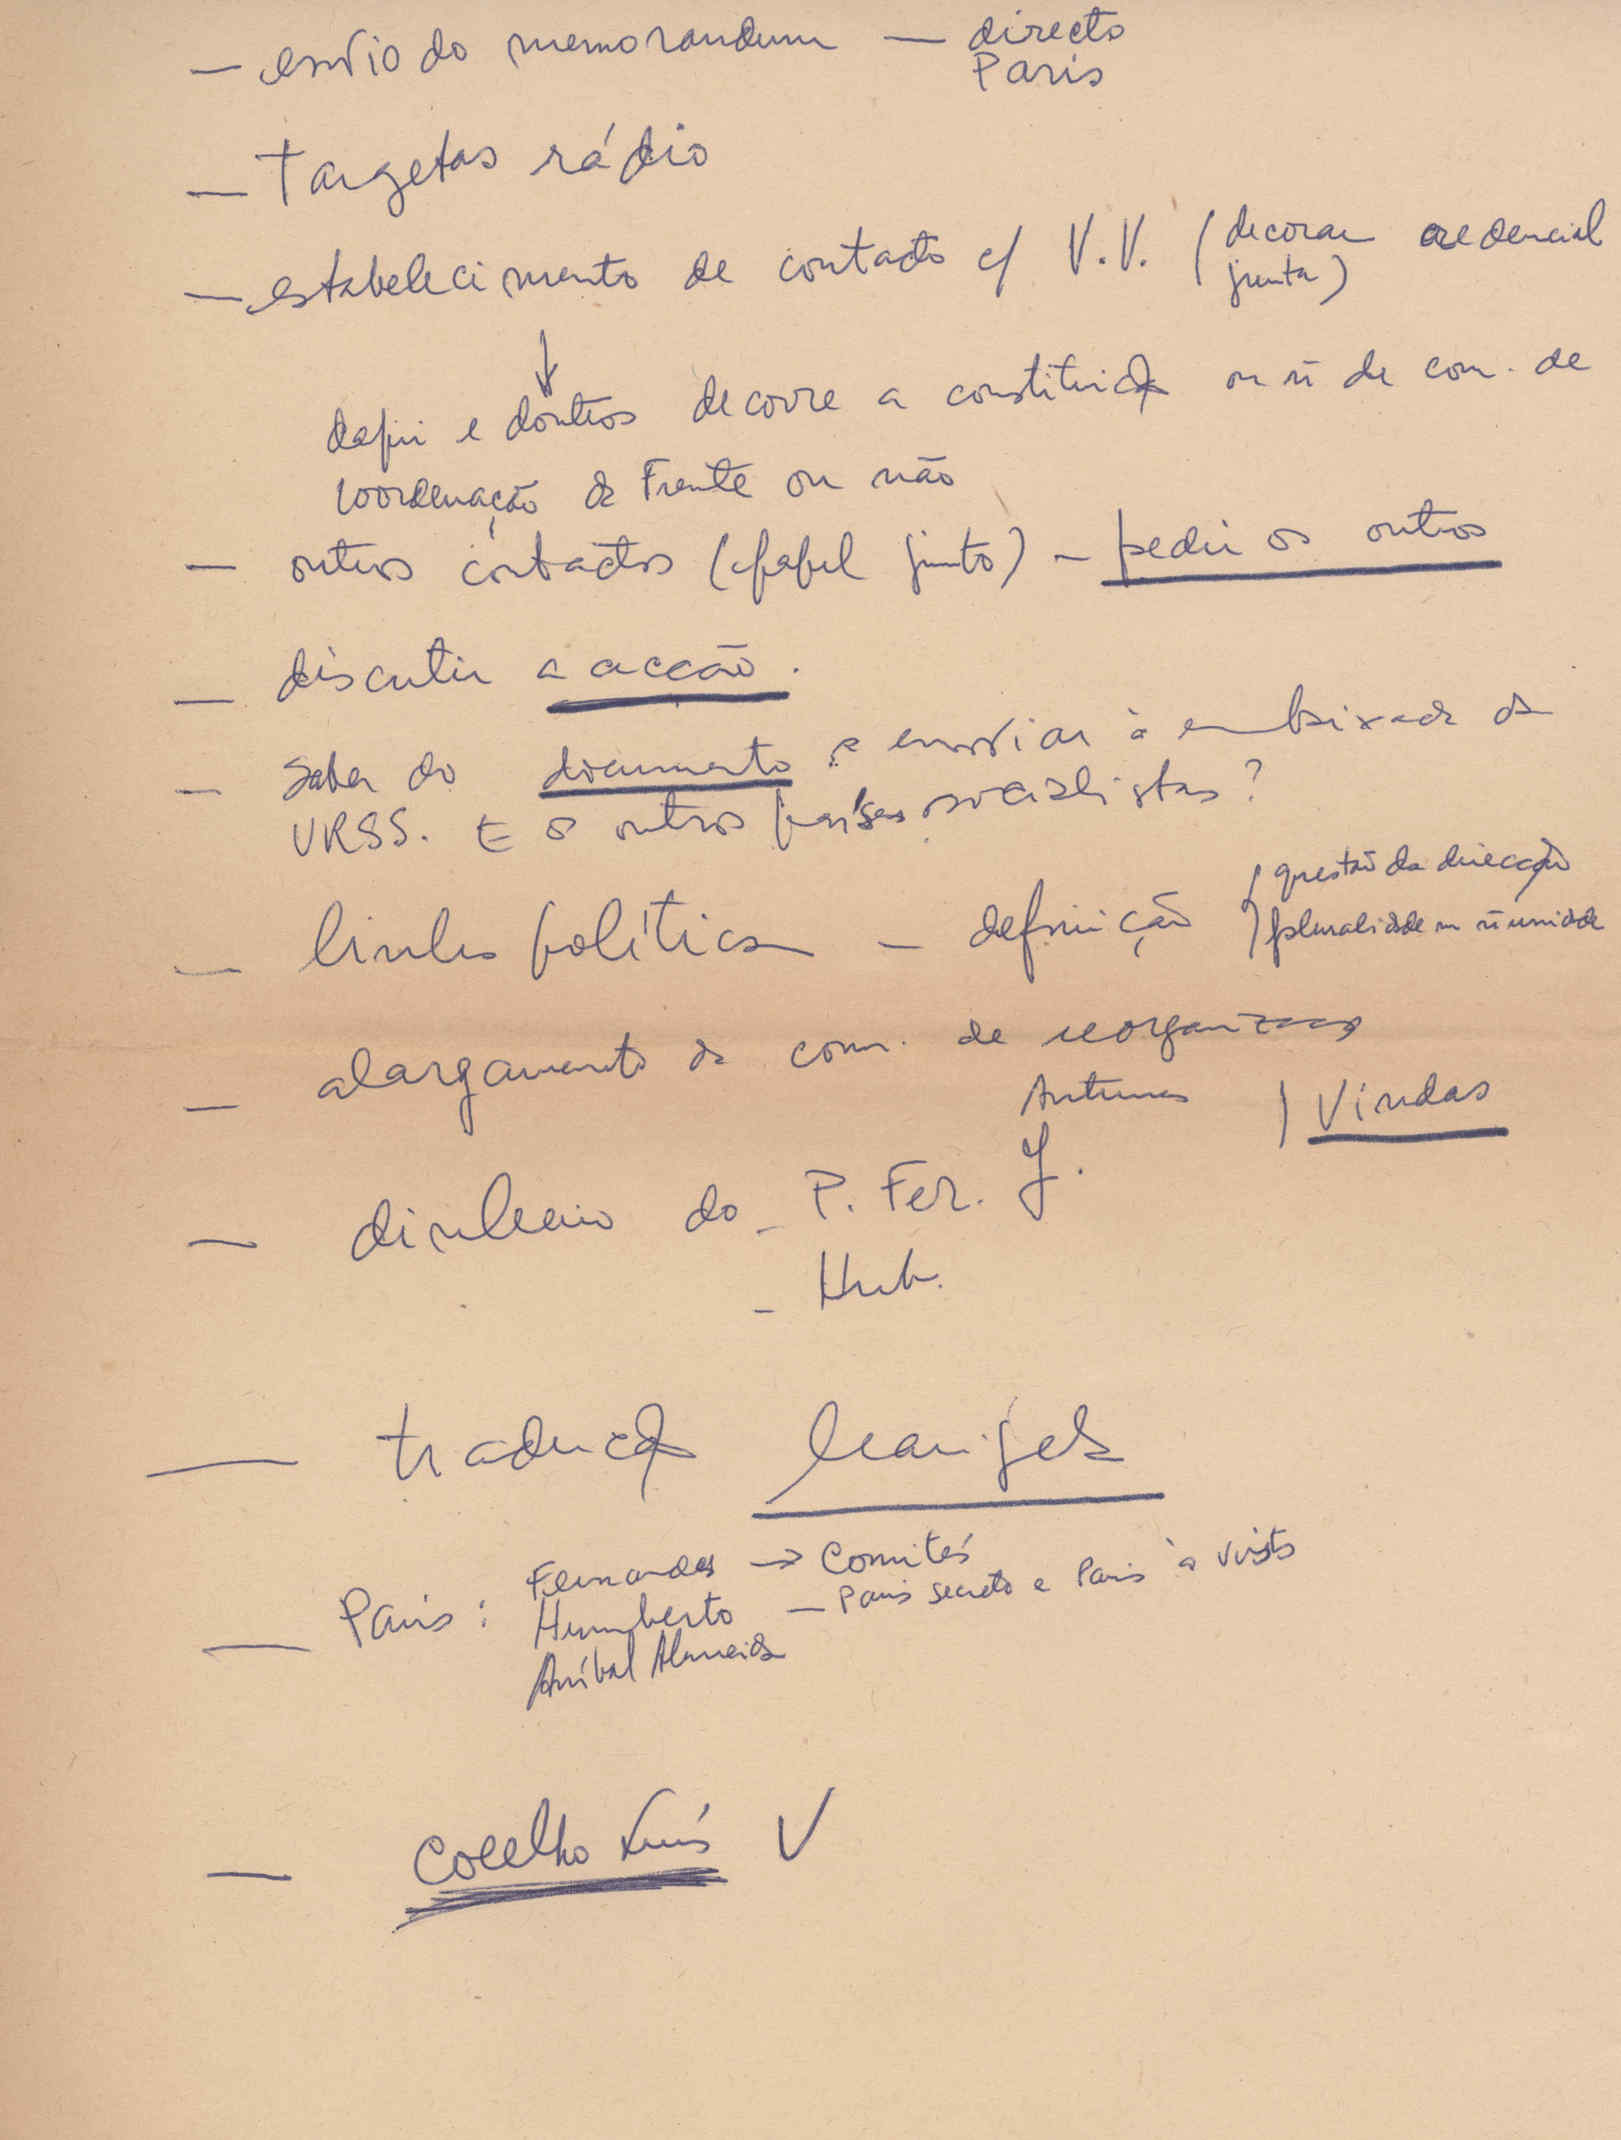 — envio do memorandum — directo
Paris
— Targetas rádio
— estabelecimento de contacto c/ V.V. (decorar credencial
junta)
↓
daqui e doutros decorre a constituição ou ñ de com. de
coordenação da Frente ou não
— outros contactos (papel junto) — pedir os outros
— discutir a acção.
— Saber do documento a enviar à embaixada da
URSS. E os outros países socialistas?
— linha política — definição
questão da direcção
pluralidade ou ñ unidade
— alargamento da com. de reorganização
Antunes | Vindas
— dinheiro do - P. Fer. J.
- Hub.
— tradução
— Paris: Fernandes → Comités
Humberto — Paris secreto e Paris à vista
Aníbal Almeida
— Coelho Luís V